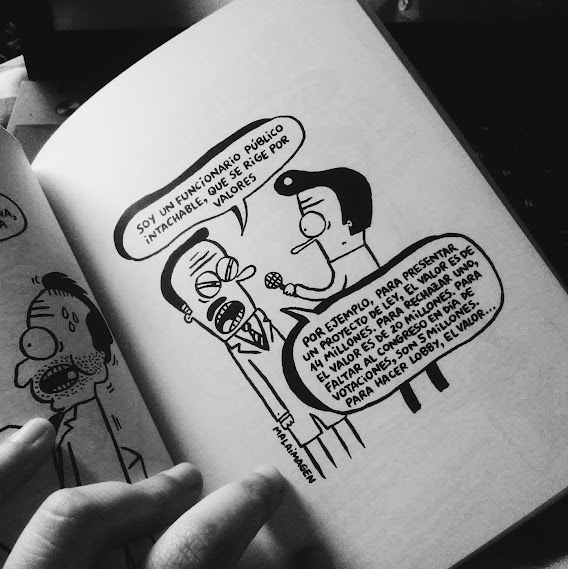 NA,
A
SOY UN FUNCIONARIO PÚBLICO
INTACHABLE, QUE SE RIGE POR
VALORES
POR EJEMPLO, PARA PRESENTAR
UN PROYECTO DE LEY, EL VALOR ES DE
14 MILLONES. PARA RECHAZAR UNO,
EL VALOR ES DE 20 MILLONES. PARA
FALTAR AL CONGRESO EN DÍA DE
VOTACIONES, SON 5 MILLONES.
PARA HACER LOBBY, EL VALOR...
MALAIMAGEN